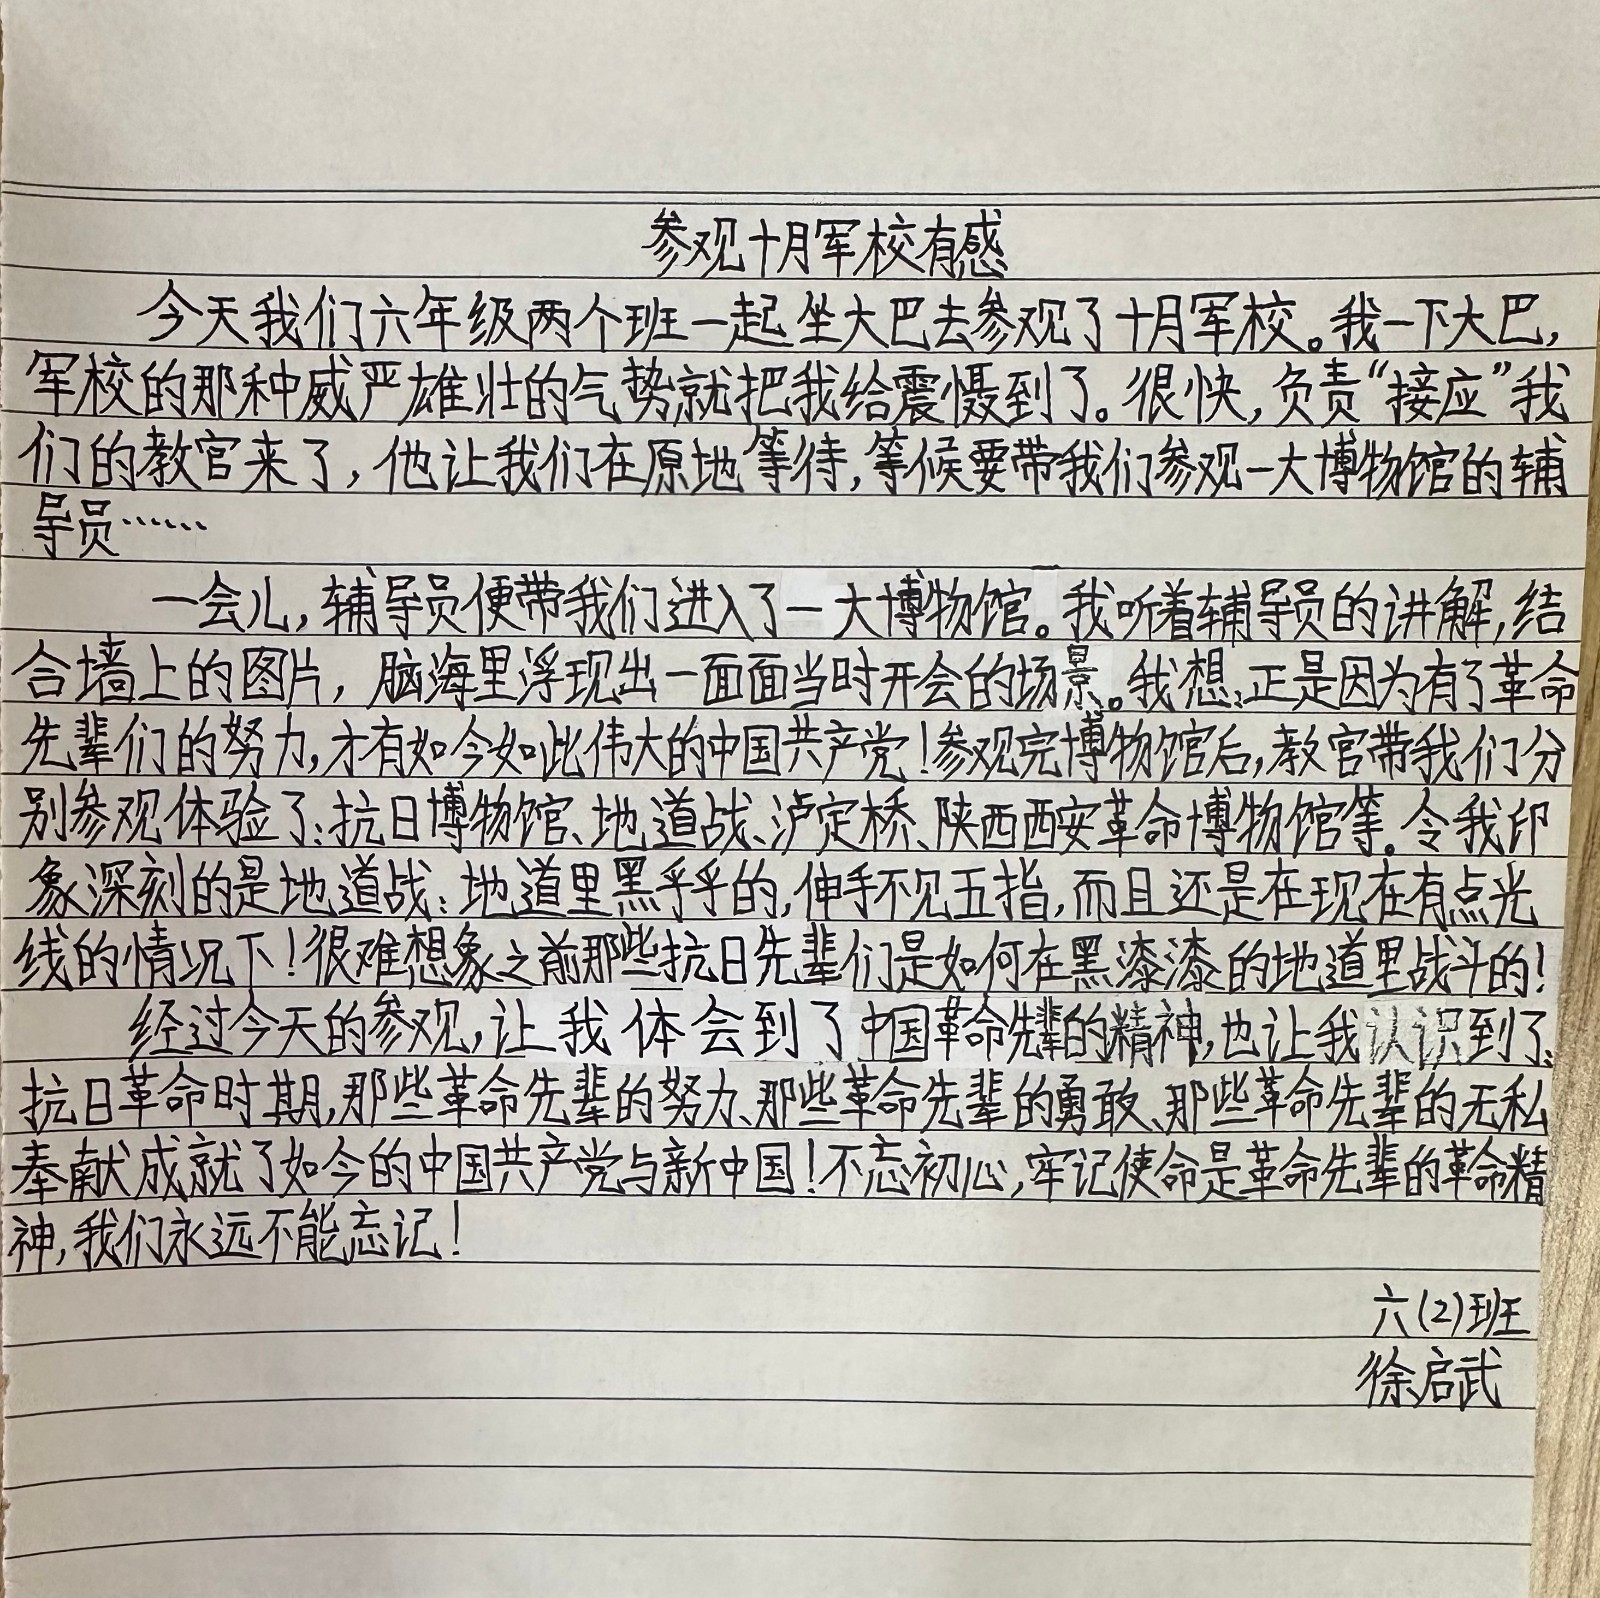 参观十月军校有感
今天我们六年级两个班一起坐大巴去参观了十月军校。我一下大巴,
军校的那种威严雄壮的气势就把我给震慑到了。很快,负责“接应”我
们的教官来了,他让我们在原地等待,等候要带我们参观一大博物馆的辅
导员……
一会儿,辅导员便带我们进入了一大博物馆。我听着辅导员的讲解,结
合墙上的图片,脑海里浮现出一面面当时开会的场景。我想:正是因为有了革命
先辈们的努力,才有如今如此伟大的中国共产党!参观完博物馆后,教官带我们分
别参观体验了:抗日博物馆、地道战、泸定桥、陕西西安革命博物馆等。令我印
象深刻的是地道战:地道里黑乎乎的,伸手不见五指,而且还是在现在有点光
线的情况下!很难想象之前那些抗日先辈们是如何在黑漆漆的地道里战斗的!
经过今天的参观,让我体会到了中国革命先辈的精神,也让我认识到了:
抗日革命时期,那些革命先辈的努力、那些革命先辈的勇敢、那些革命先辈的无私
奉献成就了如今的中国共产党与新中国!不忘初心,牢记使命是革命先辈的革命精
神,我们永远不能忘记!
六(2)班
徐启武